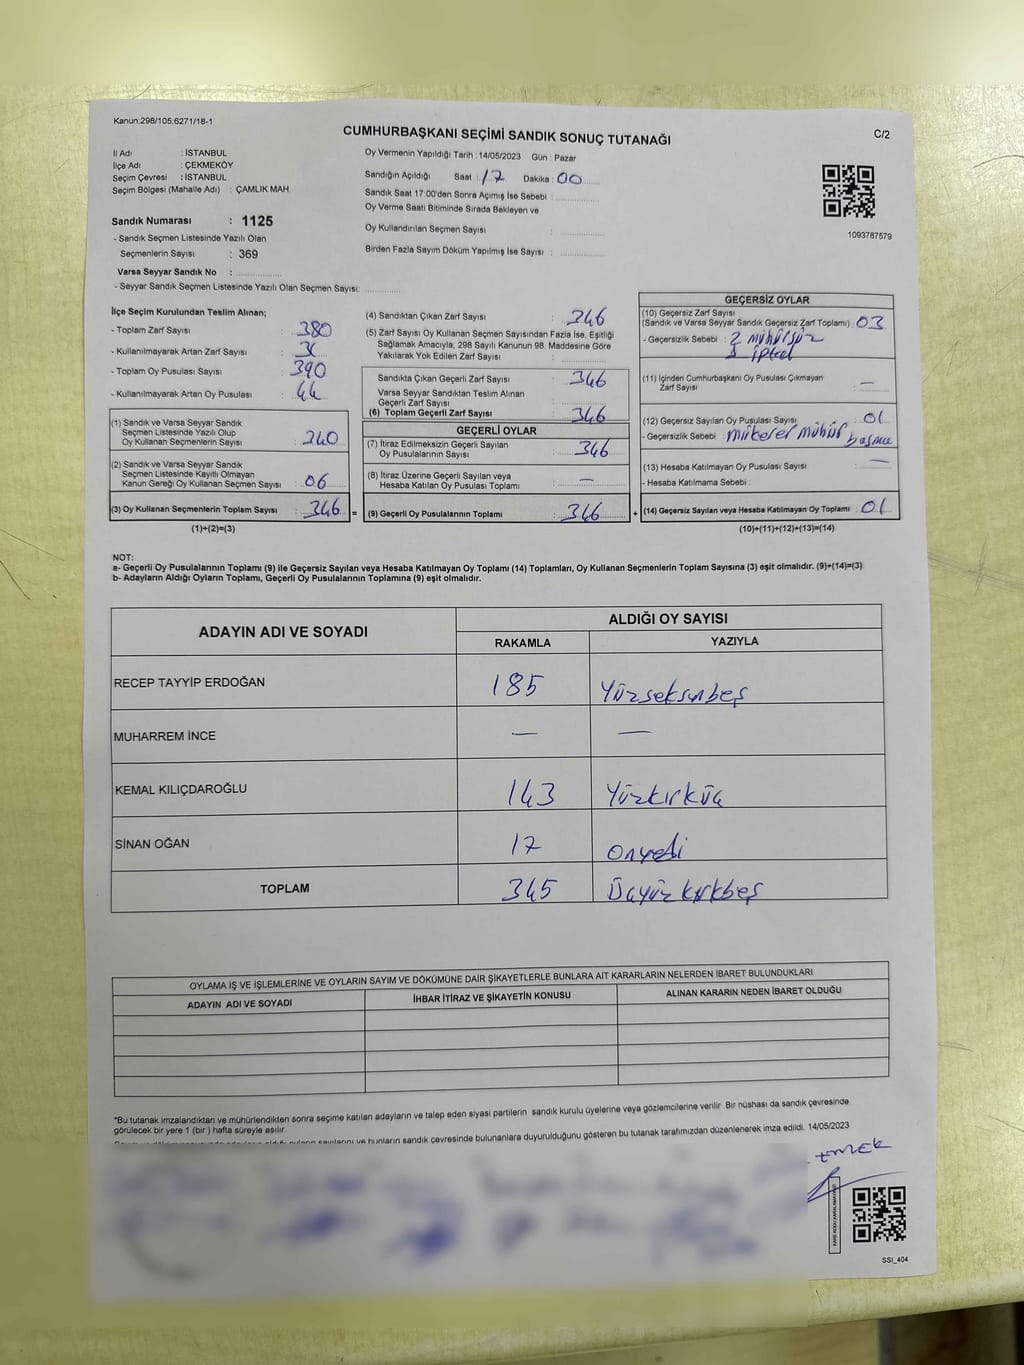 Kanun:298/105;6271/18-1
CUMHURBAŞKANI SEÇİMİ SANDIK SONUÇ TUTANAĞI
C/2
İl Adı : İSTANBUL
İlçe Adı : ÇEKMEKÖY
Seçim Çevresi : İSTANBUL
Seçim Bölgesi (Mahalle Adı) : ÇAMLIK MAH.
Sandık Numarası : 1125
- Sandık Seçmen Listesinde Yazılı Olan
Seçmenlerin Sayısı : 369
Varsa Seyyar Sandık No :
- Seyyar Sandık Seçmen Listesinde Yazılı Olan Seçmen Sayısı:
Oy Vermenin Yapıldığı Tarih :14/05/2023 Gün : Pazar
Sandığın Açıldığı Saat : 17 Dakika : 00
Sandık Saat 17:00'den Sonra Açımış İse Sebebi :
Oy Verme Saati Bitiminde Sırada Bekleyen ve
Oy Kullandırılan Seçmen Sayısı :
Birden Fazla Sayım Döküm Yapılmış İse Sayısı :
1093787579
İlçe Seçim Kurulundan Teslim Alınan;
- Toplam Zarf Sayısı : 380
- Kullanılmayarak Artan Zarf Sayısı :
- Toplam Oy Pusulası Sayısı : 390
- Kullanılmayarak Artan Oy Pusulası : 44
(1) Sandık ve Varsa Seyyar Sandık
Seçmen Listesinde Yazılı Olup
Oy Kullanan Seçmenlerin Sayısı : 340
(2) Sandık ve Varsa Seyyar Sandık
Seçmen Listesinde Kayıtlı Olmayan
Kanun Gereği Oy Kullanan Seçmen Sayısı : 06
(3) Oy Kullanan Seçmenlerin Toplam Sayısı : 346
(1)+(2)=(3)
(4) Sandıktan Çıkan Zarf Sayısı : 346
(5) Zarf Sayısı Oy Kullanan Seçmen Sayısından Fazla İse, Eşitliği
Sağlamak Amacıyla, 298 Sayılı Kanunun 98. Maddesine Göre
Yakılarak Yok Edilen Zarf Sayısı :
Sandıkta Çıkan Geçerli Zarf Sayısı : 346
Varsa Seyyar Sandıktan Teslim Alınan
Geçerli Zarf Sayısı :
(6) Toplam Geçerli Zarf Sayısı : 346
GEÇERLİ OYLAR
(7) İtiraz Edilmeksizin Geçerli Sayılan
Oy Pusulalarının Sayısı : 346
(8) İtiraz Üzerine Geçerli Sayılan veya
Hesaba Katılan Oy Pusulası Toplamı : —
= (9) Geçerli Oy Pusulalarının Toplamı : 346
GEÇERSİZ OYLAR
(10) Geçersiz Zarf Sayısı
(Sandık ve Varsa Seyyar Sandık Geçersiz Zarf Toplamı) : 03
- Geçersizlik Sebebi : 2 mühürsüz
iptal
(11) İçinden Cumhurbaşkanı Oy Pusulası Çıkmayan
Zarf Sayısı : —
(12) Geçersiz Sayılan Oy Pusulası Sayısı : 01
- Geçersizlik Sebebi : mükerer mühür basma
(13) Hesaba Katılmayan Oy Pusulası Sayısı : —
- Hesaba Katılmama Sebebi :
+ (14) Geçersiz Sayılan veya Hesaba Katılmayan Oy Toplamı : 01
(10)+(11)+(12)+(13)=(14)
NOT:
a- Geçerli Oy Pusulalarının Toplamı (9) ile Geçersiz Sayılan veya Hesaba Katılmayan Oy Toplamı (14) Toplamları, Oy Kullanan Seçmenlerin Toplam Sayısına (3) eşit olmalıdır. (9)+(14)=(3)
b- Adayların Aldığı Oyların Toplamı, Geçerli Oy Pusulalarının Toplamına (9) eşit olmalıdır.
ADAYIN ADI VE SOYADI
ALDIĞI OY SAYISI
RAKAMLA YAZIYLA
RECEP TAYYİP ERDOĞAN 185 Yüzseksenbeş
MUHARREM İNCE — —
KEMAL KILIÇDAROĞLU 143 Yüzkırküç
SİNAN OĞAN 17 onyedi
TOPLAM 345 Üçyüzkırkbeş
OYLAMA İŞ VE İŞLEMLERİNE VE OYLARIN SAYIM VE DÖKÜMÜNE DAİR ŞİKAYETLERLE BUNLARA AİT KARARLARIN NELERDEN İBARET BULUNDUKLARI
ADAYIN ADI VE SOYADI İHBAR İTİRAZ VE ŞİKAYETİN KONUSU ALINAN KARARIN NEDEN İBARET OLDUĞU
*Bu tutanak imzalandıktan ve mühürlendikten sonra seçime katılan adayların ve talep eden siyasi partilerin sandık kurulu üyelerine veya gözlemcilerine verilir. Bir nüshası da sandık çevresinde
görülecek bir yere 1 (bir) hafta süreyle asılır.
sayılarını ve bunların sandık çevresinde bulunanlara duyurulduğunu gösteren bu tutanak tarafımızdan düzenlenerek imza edildi. 14/05/2023
SSI_404